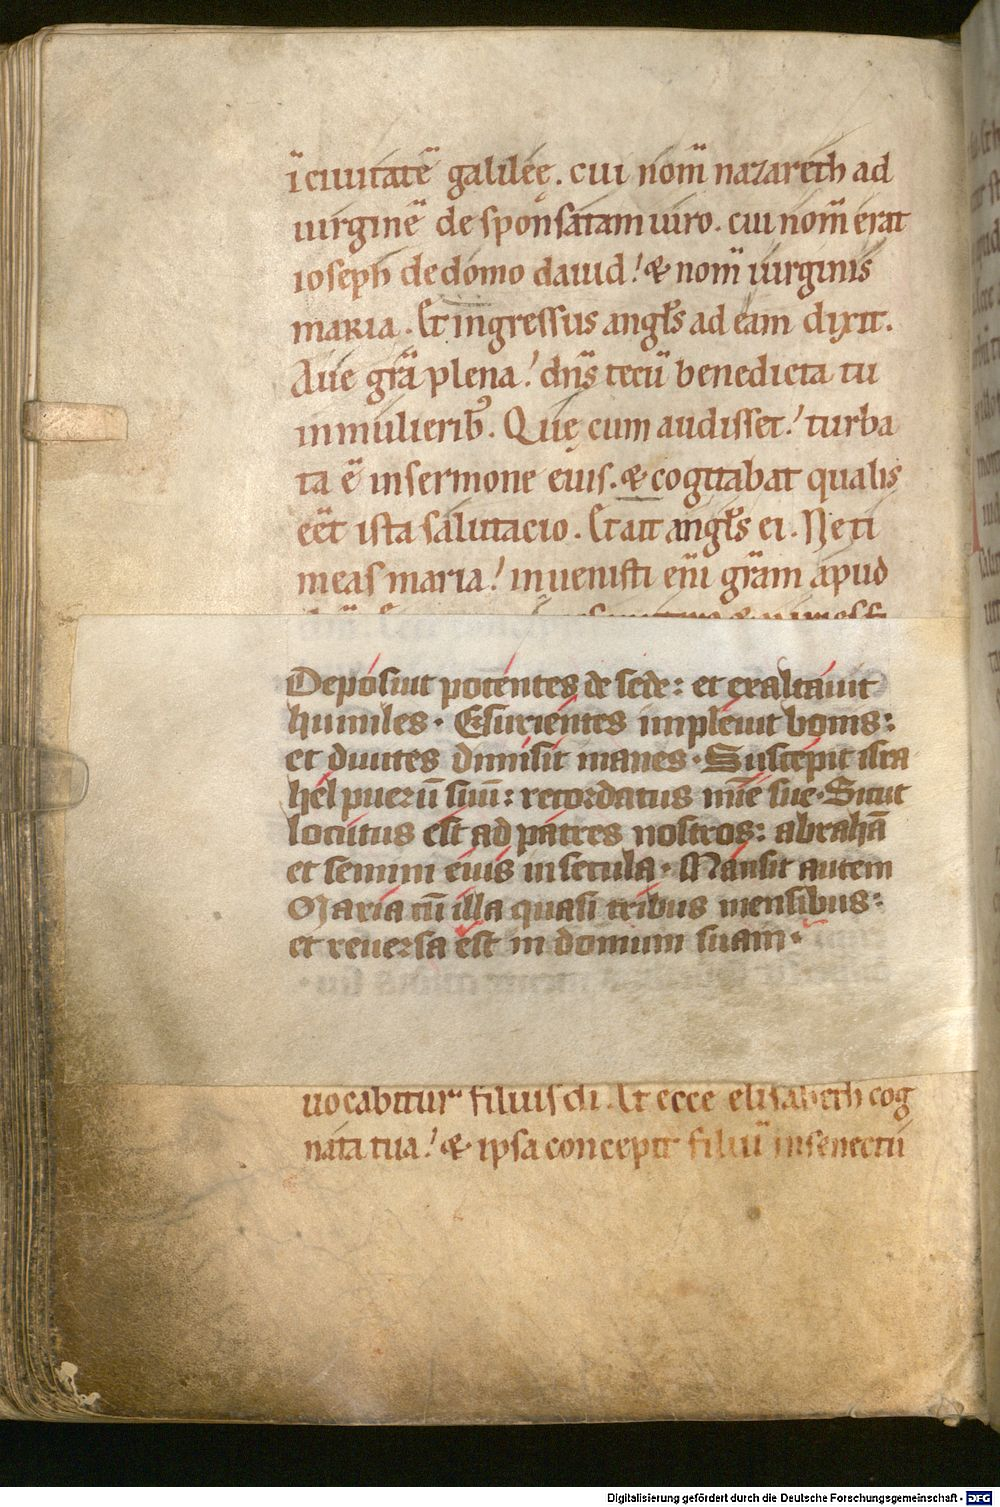 ī ciuitatē galileę. cui nom̄ nazareth ad
uirginē de sponsatam uiro. cui nom̄ erat
ioseph de domo dauid! & nom̄ uirginis
maria. Et ingressus angl̄s ad eam dixit.
Aue gr̄a plena! dn̄s tecū benedicta tu
in mulierib᷒. Quę cum audisset! turba
ta ē in sermone eius. & cogitabat qualis
eēt ista salutacio. Et ait angl̄s ei. Ne ti
meas maria! inuenisti eni gr̄am apud
Deposuit potentes de sede: et exaltauit
humiles. Esurientes impleuit bonis:
et diuites dimisit inanes. Suscepit isra
hel puerū suū: recordatus mīe sue. Sicut
locutus est ad patres nostros: abrahā
et semini eius in secula. Mansit autem
Maria cū illa quasi tribus mensibus:
et reuersa est in domum suam.
uocabitur filius di. Et ecce elisabeth cog
nata tua! & ipsa concepit filiū in senectu
Digitalisierung gefördert durch die Deutsche Forschungsgemeinschaft - DFG